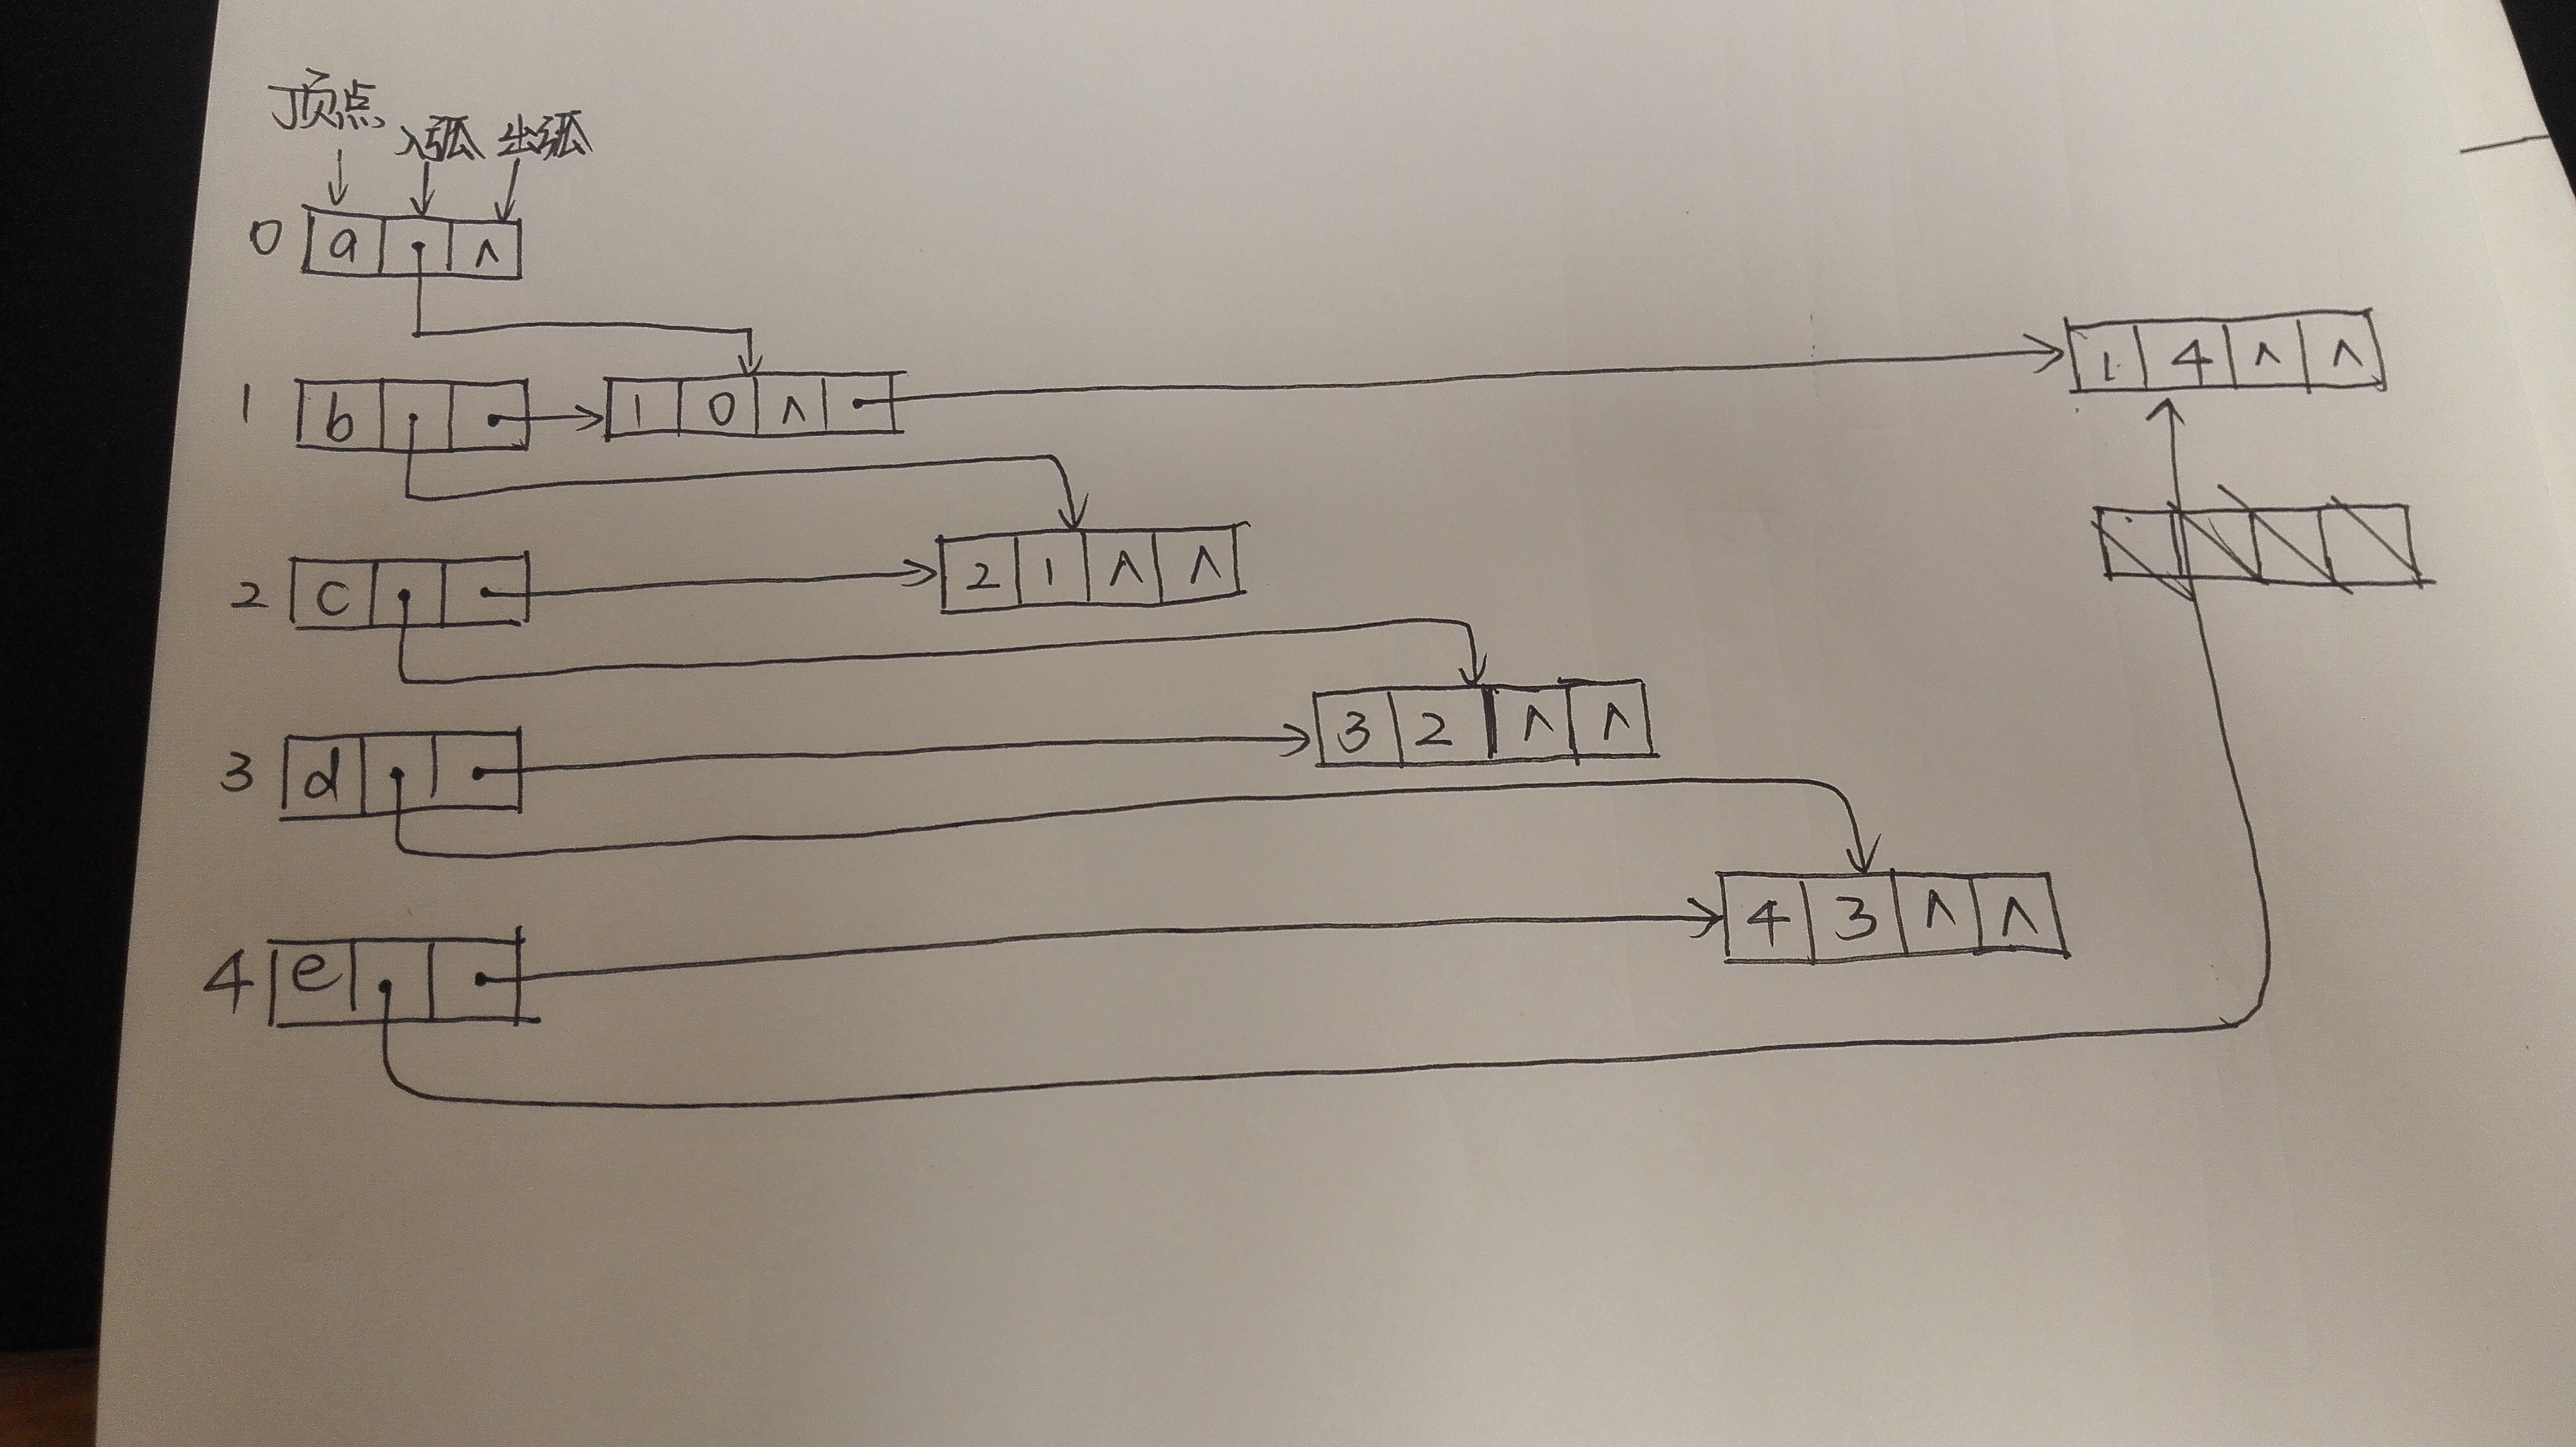 顶点 入弧 出弧
0 a ∧
1 b 1 0 ∧ 1 4 ∧ ∧
2 c 2 1 ∧ ∧
3 d 3 2 ∧ ∧
4 e 4 3 ∧ ∧